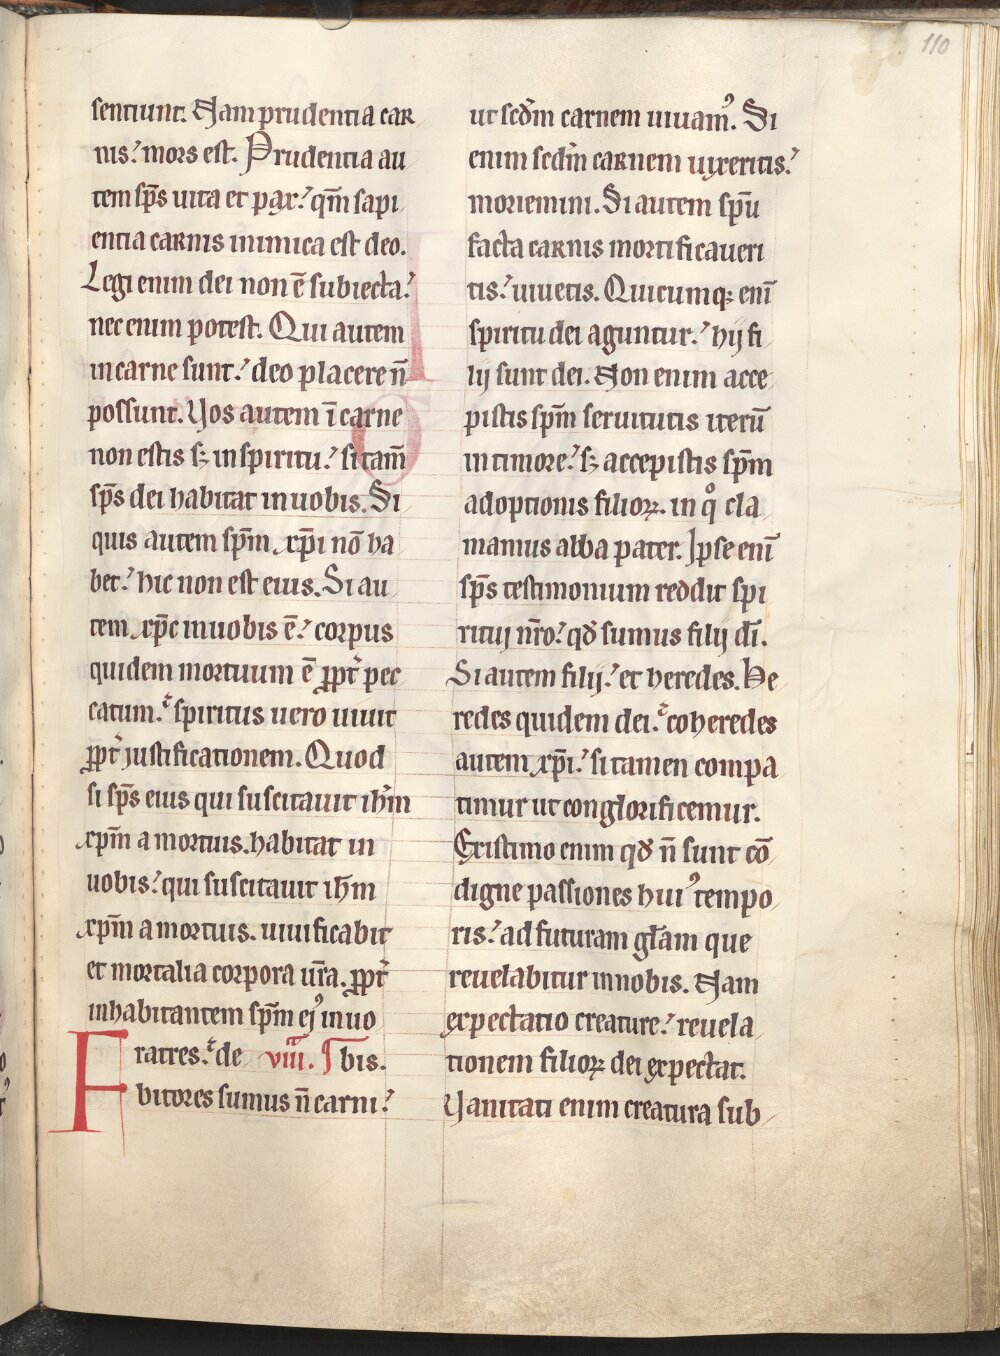 110
sentiunt. Nam prudentia car
nis? mors est. Prudentia au
tem sp̄s uita et pax? qm̄ sapi
entia carnis inimica est deo.
Legi enim dei non ē subiecta?
nec enim potest. Qui autem
in carne sunt? deo placere n̄
possunt. Uos autem ī carne
non estis sꝫ in spiritu? si tam̄
sp̄s dei habitat in uobis. Si
quis autem sp̄m xp̄i nō ha
bet? hic non est eius. Si au
tem xp̄c in uobis ē? corpus
quidem mortuum ē ꝓpt̄ pec
catum. spiritus uero uiuit
ꝓpt̄ justificationem. Quod
si sp̄s eius qui suscitauit ih̄m
xp̄m a mortuis. habitat in
uobis? qui suscitauit ih̄m
xp̄m a mortuis. uiuificabit
et mortalia corpora ur̄a. ꝓpt̄
inhabitantem sp̄m ej᾽ in uo
Fratres. de viii. bis.
bitores sumus n̄ carni?
ut scd̄m carnem uiuam᾽. Si
enim scd̄m carnem uixeritis?
moriemini. Si autem sp̄u
facta carnis mortificaueri
tis? uiuetis. Quicumqꝫ enī
spiritu dei aguntur? hij fi
lij sunt dei. Non enim acce
pistis sp̄m seruitutis iterū
in timore? sꝫ accepistis sp̄m
adoptionis filioꝝ. in qͦ cla
mamus abba pater. Ipse enī
sp̄s testimonium reddit spi
ritui nr̄o? qd̄ sumus filij dī.
Si autem filij? et heredes. He
redes quidem dei. coheredes
autem xp̄i? si tamen compa
timur ut conglorificemur.
Existimo enim qd̄ n̄ sunt cō
digne passiones hui᾽ tempo
ris? ad futuram gl̄am que
reuelabitur in nobis. Nam
expectatio creature? reuela
tionem filioꝝ dei expectat.
Uanitati enim creatura sub